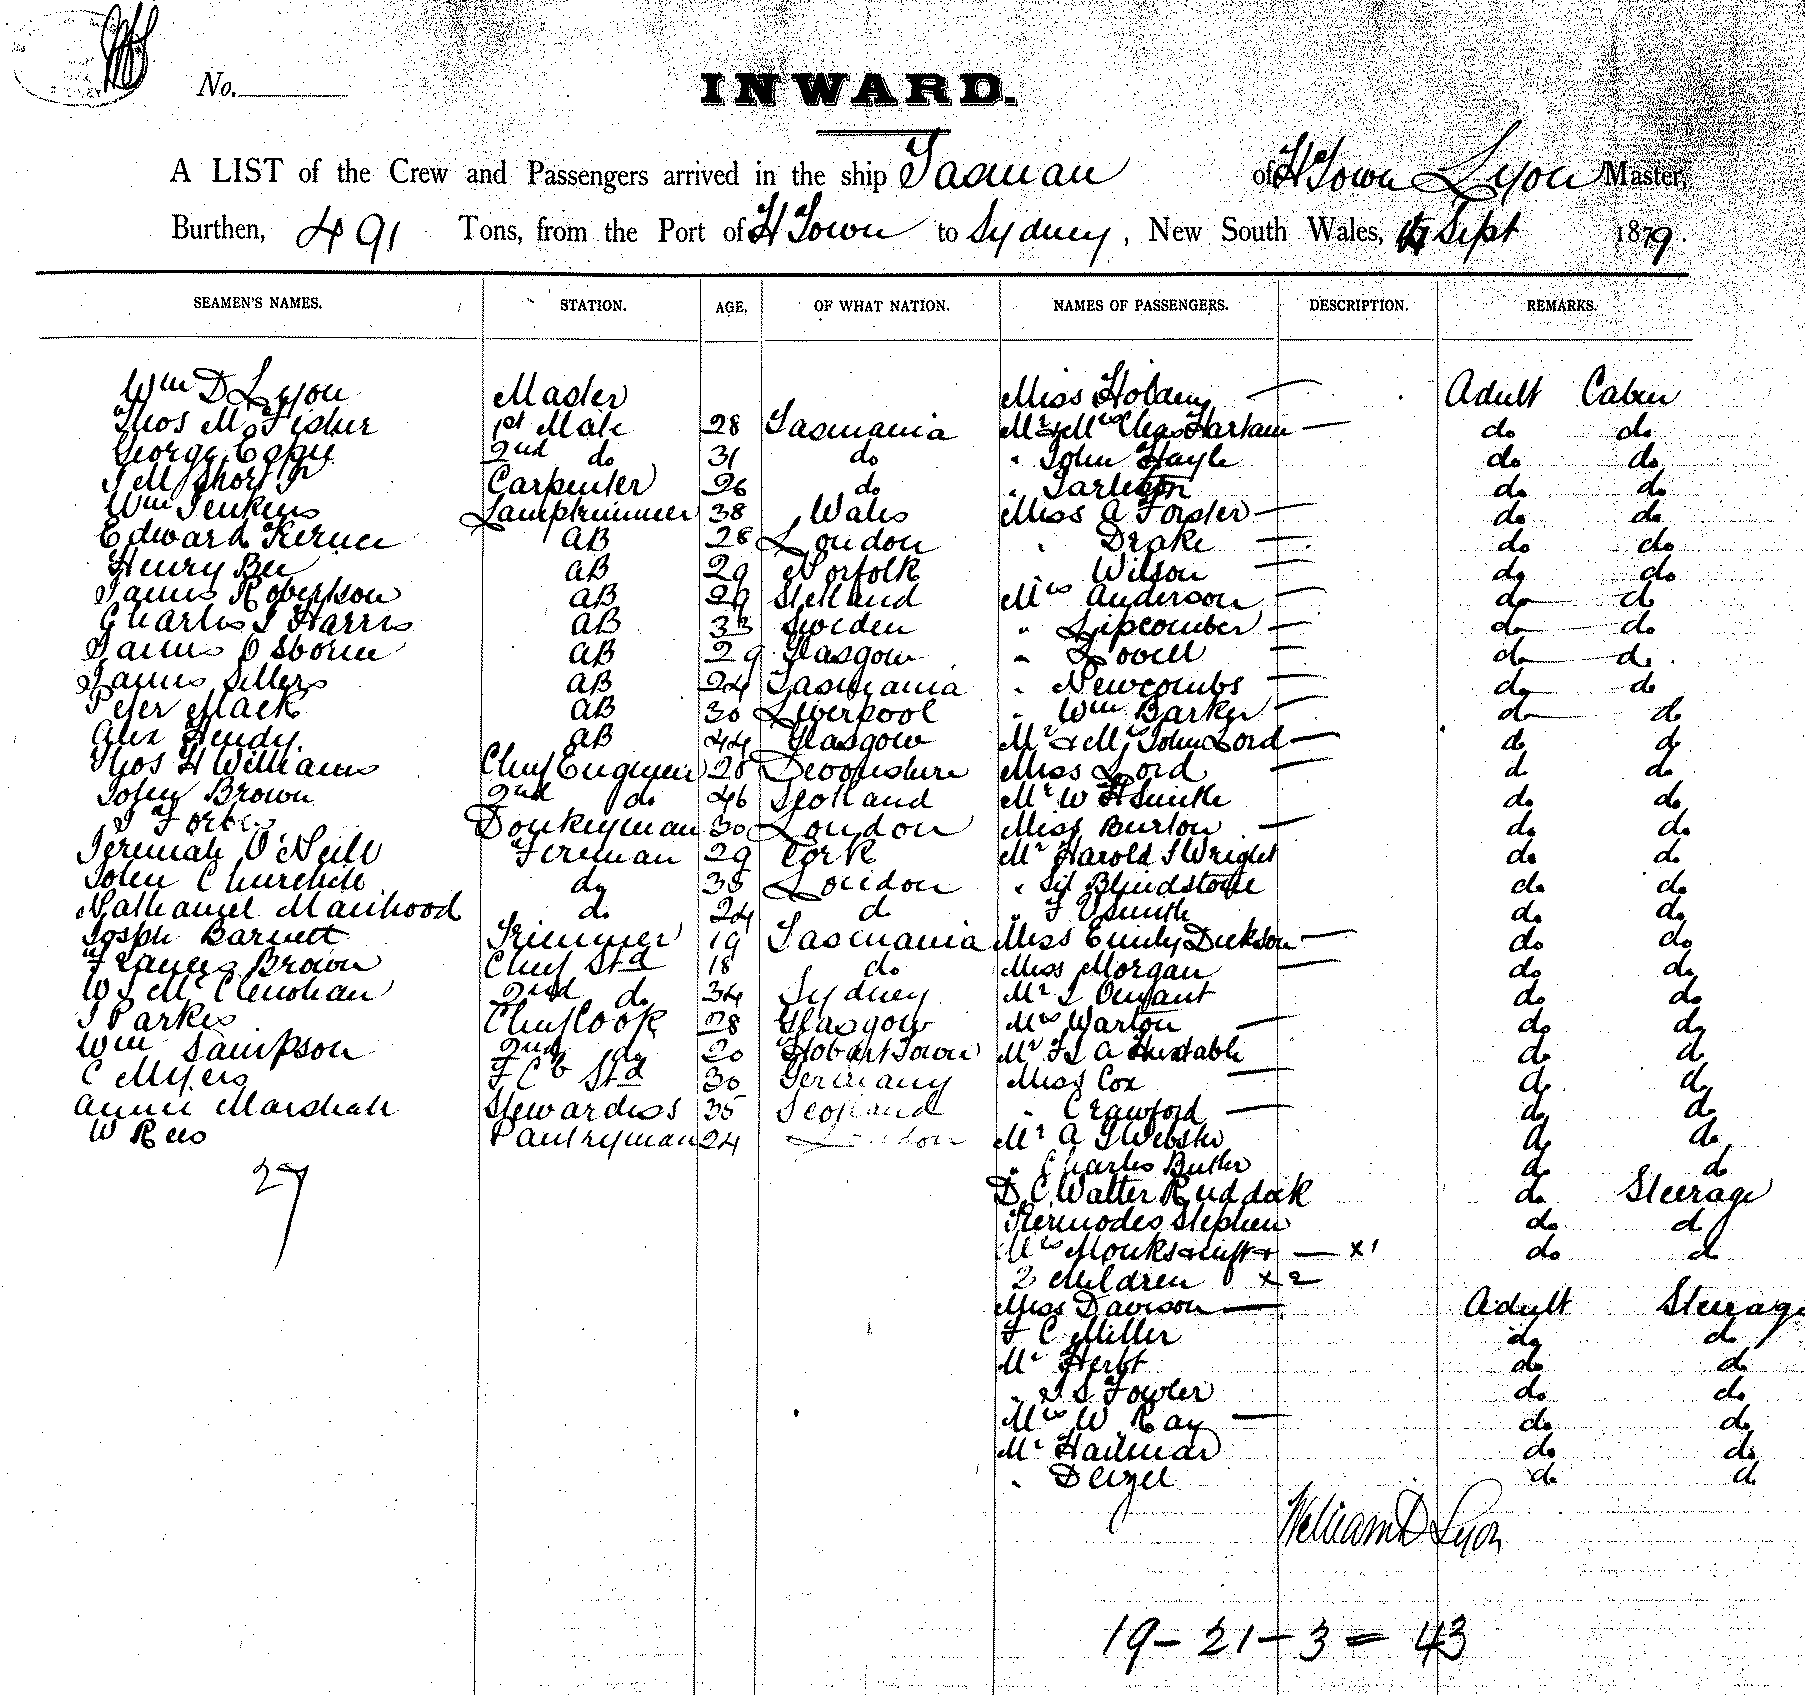 No.
INWARD.
A LIST of the Crew and Passengers arrived in the ship Tasman of HTown Lyon Master,
Burthen, 491 Tons, from the Port of H Town to Sydney, New South Wales, Sept 1879.
SEAMEN'S NAMES. STATION. AGE. OF WHAT NATION. NAMES OF PASSENGERS. DESCRIPTION. REMARKS.
Wm D Lyon Master Miss Adult Cabin
Thos M Fisher 1st Mate 28 Tasmania Mr & Mrs Chas do do
George 2nd do 31 do " John Hayle do do
Short Carpenter 26 do " Tarleton do do
Wm Jenkins Lamptrimmer 38 Wales Miss A Forster do do
Edward AB 28 London " Drake do do
Henry Bee AB 29 Norfolk " Wilson do do
James Robertson AB 29 Mrs Anderson do do
Charles J Harris AB 33 Sweden " Lipcomber do do
James Osborne AB 29 Glasgow " Lovell do do
James Sellers AB 24 Tasmania " Newcombs do do
Peter Mack AB 30 Liverpool " Wm Barker do do
Alex Hendy AB 44 Glasgow Mr & Mrs John Lord do do
Thos H Williams Chief Engineer 28 Devonshire Miss Lord do do
John Brown 2nd do 46 Scotland Mr W H Smith do do
Forbes Donkeyman 30 London Miss Burton do do
Jeremiah O'Neill Fireman 29 Cork Mr Harold J Wright do do
John Churchill do 38 London " Blindstone do do
Nathaniel Manhood do 24 do " Smith do do
Joseph Barnett Trimmer 19 Tasmania Miss Emily Dickson do do
Frances Brown Chief Std 18 do Miss Morgan do do
W J McClenohan 2nd do 34 Sydney Mr do do
J Parkes Chief Cook 28 Glasgow Mrs Warton do do
Wm Sampson 2nd do 20 Hobart Town Mr Huxtable do do
C Myers F C Std 30 Germany Miss Cox do do
Annie Marshall Stewardess 35 Scotland " Crawford do do
W Rees Pantryman 24 London Mr A J Webster do do
27 " Charles Butler do do
D C Walter Ruddock do Steerage
Kermodes Stephen do do
Mrs Monks x1 do do
2 Children x2
Miss Davison Adult Steerage
F C Miller do do
Mr Herbt do do
" Fowler do do
Mrs W Ray do do
Mr do do
" do do
William D Lyon
19 - 21 - 3 = 43